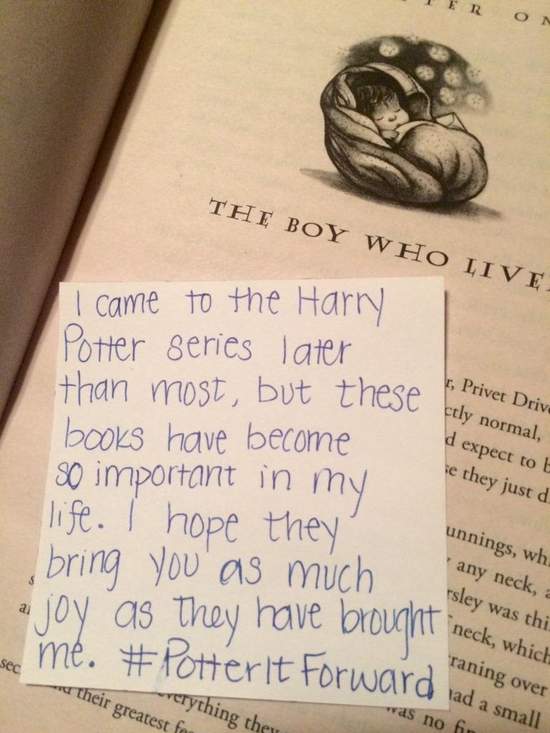 THE BOY WHO LIVE
I came to the Harry
Potter series later
than most, but these
books have become
so important in my
life. I hope they
bring you as much
joy as they have brought
me. #PotterItForward
, Privet Driv
ctly normal,
d expect to b
e they just d
unnings, wh
any neck, a
rsley was thi
neck, which
raning over
ad a small
was no
everything they
their greatest